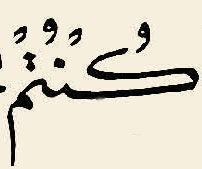 كُنْتُمْ